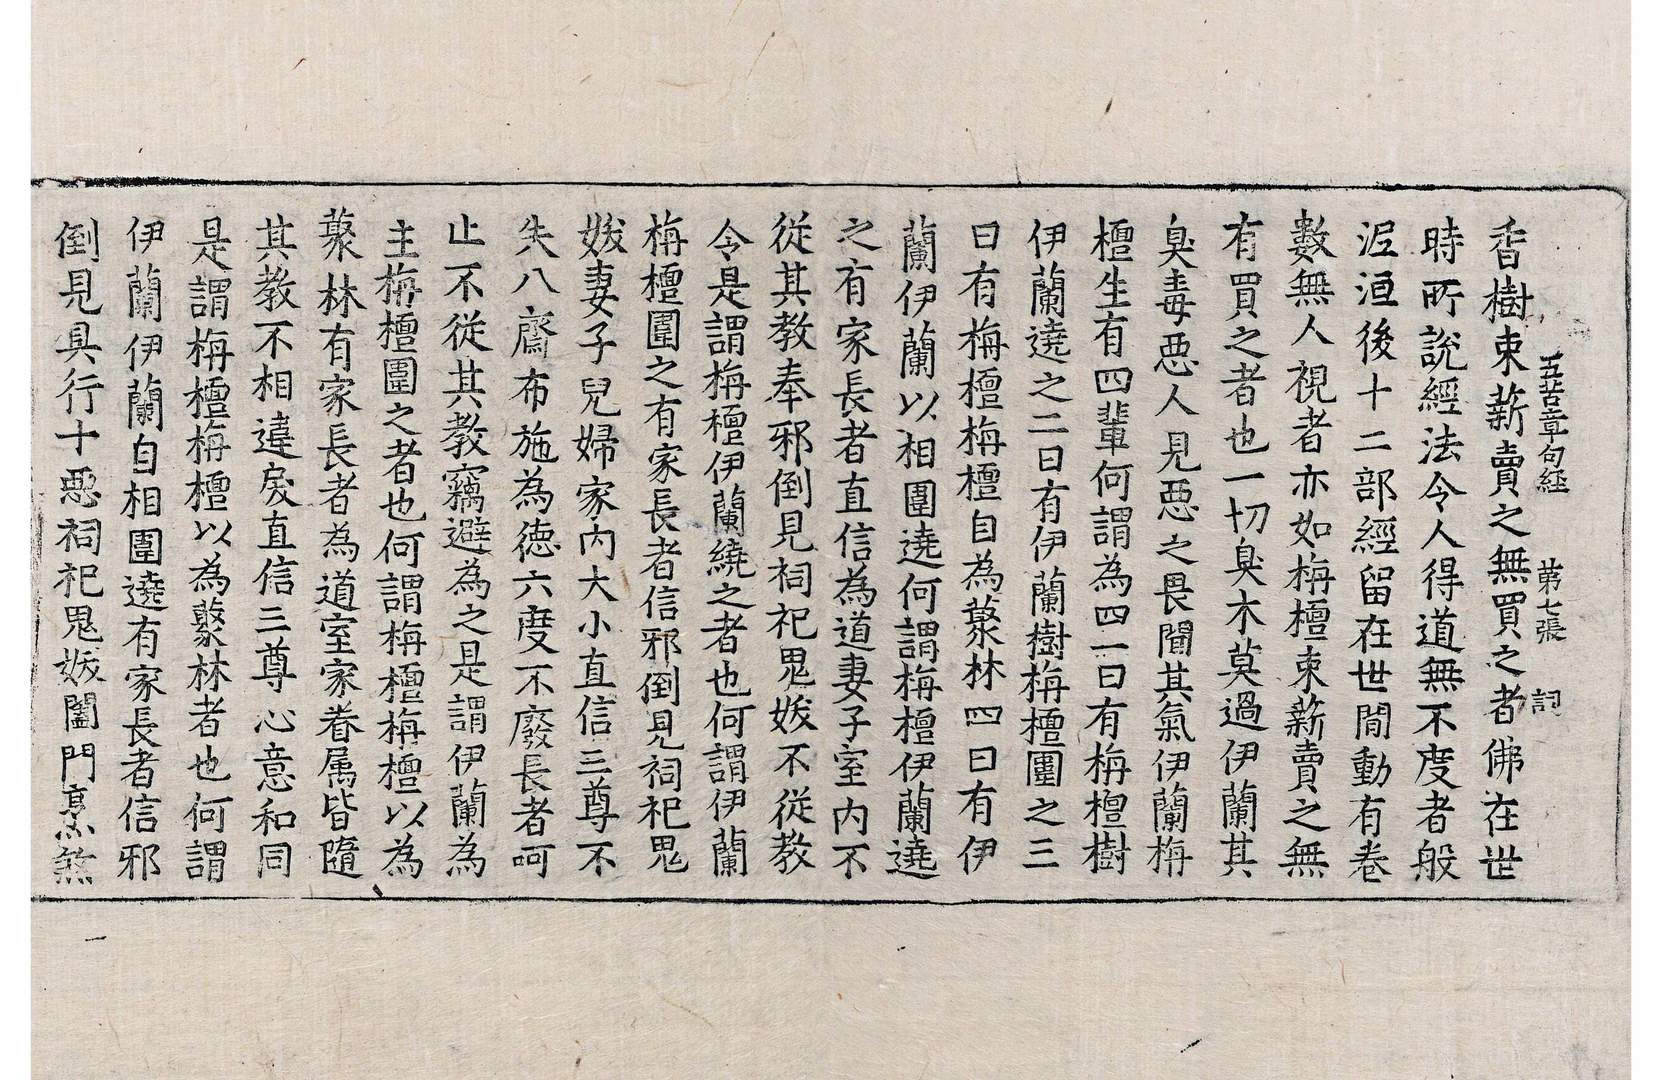 五苦章句経 第七張 詞
香樹束薪賣之無買之者佛在世
時所說經法令人得道無不度者般
泥洹後十二部經留在世間動有卷
數無人視者亦如栴檀束薪賣之無
有買之者也一切臭木莫過伊蘭其
臭毒惡人見惡之畏聞其氣伊蘭栴
檀生有四輩何謂為四一曰有栴檀樹
伊蘭遶之二曰有伊蘭樹栴檀圍之三
曰有栴檀栴檀自為藂林四曰有伊
蘭伊蘭以相圍遶何謂栴檀伊蘭遶
之有家長者直信為道妻子室內不
從其教奉邪倒見祠祀鬼妭不從教
令是謂栴檀伊蘭繞之者也何謂伊蘭
栴檀圍之有家長者信邪倒見祠祀鬼
妭妻子兒婦家內大小直信三尊不
失八齋布施為德六度不廢長者呵
止不從其教竊避為之是謂伊蘭為
主栴檀圍之者也何謂栴檀栴檀以為
藂林有家長者為道室家眷属皆隨
其教不相違戾直信三尊心意和同
是謂栴檀栴檀以為藂林者也何謂
伊蘭伊蘭自相圍遶有家長者信邪
倒見具行十惡祠祀鬼妭闔門烹煞